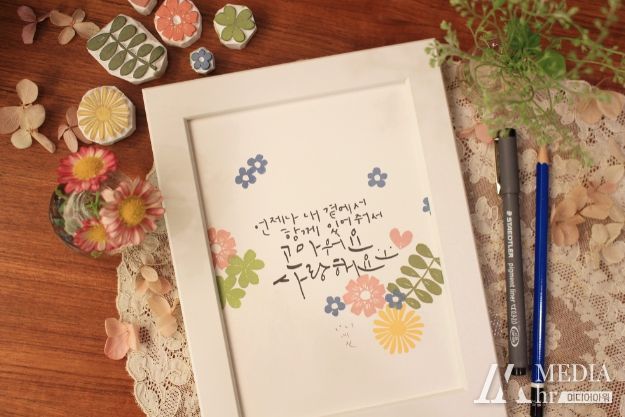 언제나 내 곁에서
함께 있어줘서
고마워요
사랑해요
STAEDTLER
pigment liner
MEDIA
hr 미디어아워